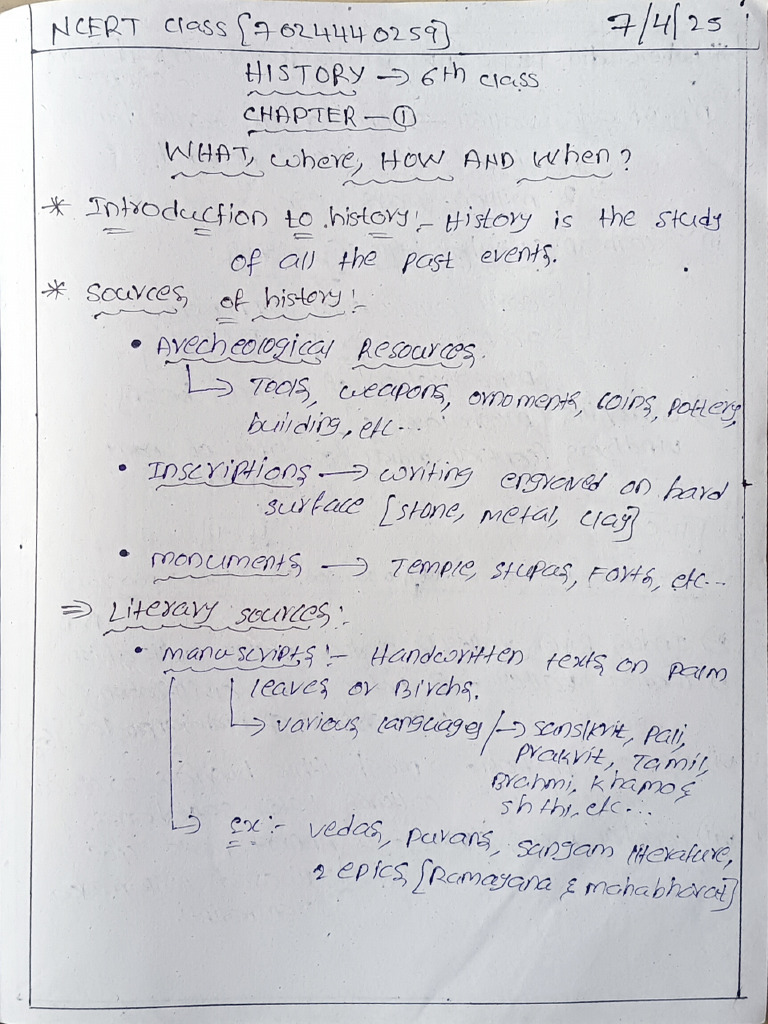 NCERT class [7024440259] 7/4/25
HISTORY → 6th class
CHAPTER - ①
WHAT, where, HOW AND When?
* Introduction to history:- History is the study
of all the past events.
* Sources of history:-
• Arecheological Resources.
↳ Tools, weapons, ornoments, coins, pottery,
building, etc...
• Inscriptions → writing engraved on hard
surface [stone, metal, clay]
• monuments → Temple, stupas, Forts, etc...
⇒ Literary sources:-
• manuscripts:- Handwritten texts on palm
leaves or Birchs.
↳ various languages → sanskrit, pali,
prakrit, Tamil,
Brahmi,
etc...
↳ Ex:- vedas, purans, sangam literature,
2 epics [Ramayana & mahabharat]